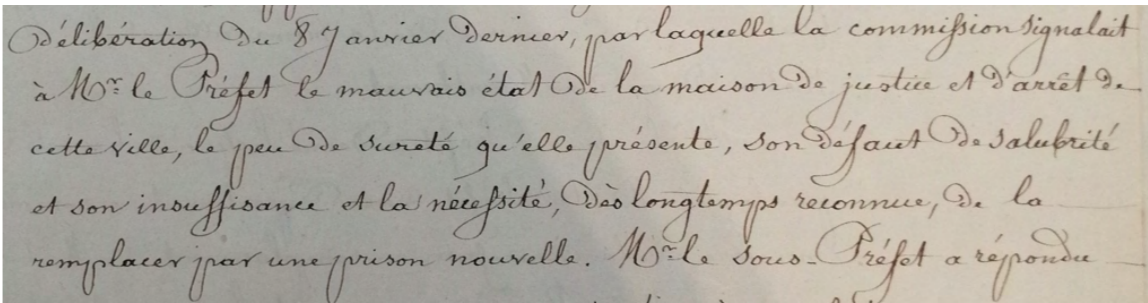 Délibération du 8 Janvier dernier, par laquelle la commission signalait
à Mr. le Préfet le mauvais état de la maison de justice et d'arrêt de
cette ville, le peu de sureté qu'elle présente, son défaut de salubrité
et son insuffisance et la nécessité, dès longtemps reconnue, de la
remplacer par une prison nouvelle. Mr. le Sous-Préfet a répondu